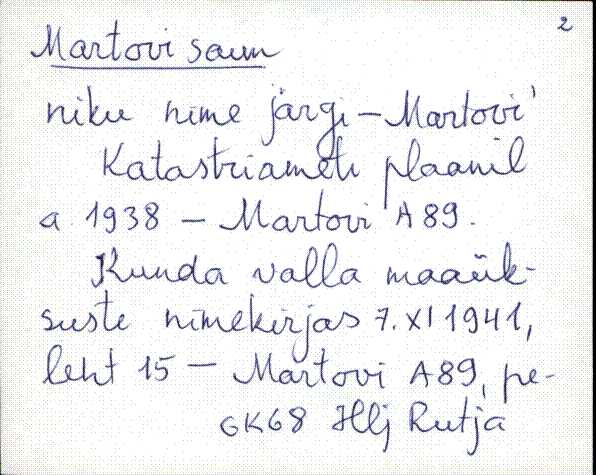 2
Martovi saun
niku nime järgi – Martovi'
Katastriameti plaanil
a. 1938 – Martovi A 89.
Kunda valla maaük-
suste nimekirjas 7. XI 1941,
leht 15 – Martovi A 89, pe-
GK68 Hlj Rutja